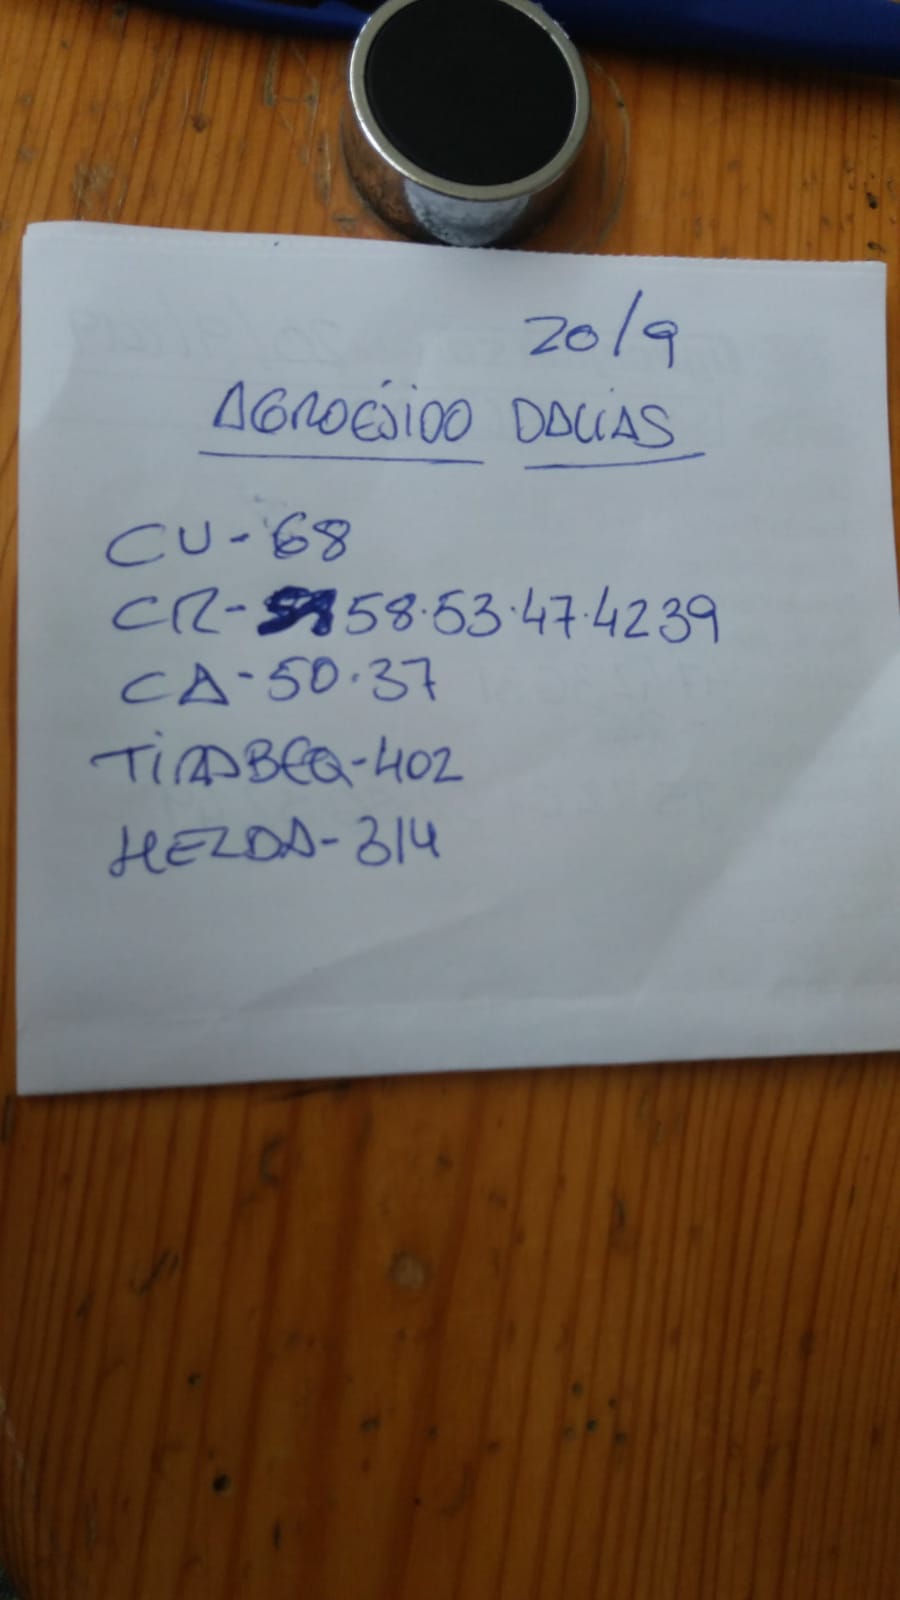 20/9
AGROEJIDO DALIAS
CU-68
CR-58.53.47.4239
CA-50.37
TIRABEQ-402
HELDA-314